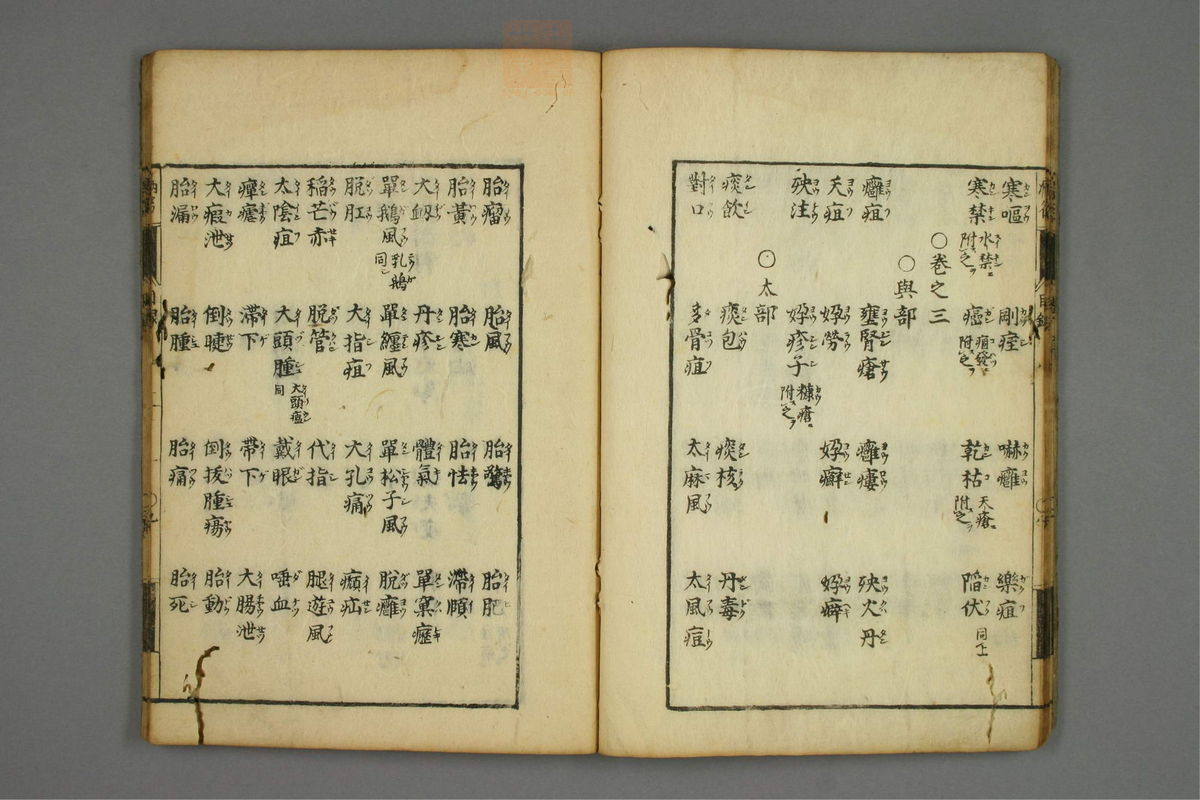 寒嘔 剛痓 嚇癰 樂疽
寒禁 水禁ニ附之 癌 附之 乾枯 天瘡ニ附之 陷伏 同上
〇卷之三
〇與部
癰疽 壅腎瘡 癰瘻 殃火丹
夭疽 㛴勞 㛴癬 㛴癖
殃注 㛴疹子 糠瘡ニ附之
〇太部
痰飲 痰包 痰核 丹毒
對口 多骨疽 太麻風 太風痘
胎瘤 胎風 胎驚 胎肥
胎黃 胎寒 胎怯 滯頤
大衂 丹疹 體氣 單窠癧
單鵝風 乳鵝同シ 單纏風 單松子風 脫癰
脫肛 大指疽 大乳痛 癩疝
稲芒赤 脫管 代指 腿遊風
太陰疽 大頭腫 大頭瘟同 戴眼 唾血
癉瘧 滯下 帶下 大腸泄
大瘕泄 倒睫 倒扳腫瘍 胎動
胎漏 胎腫 胎痛 胎死